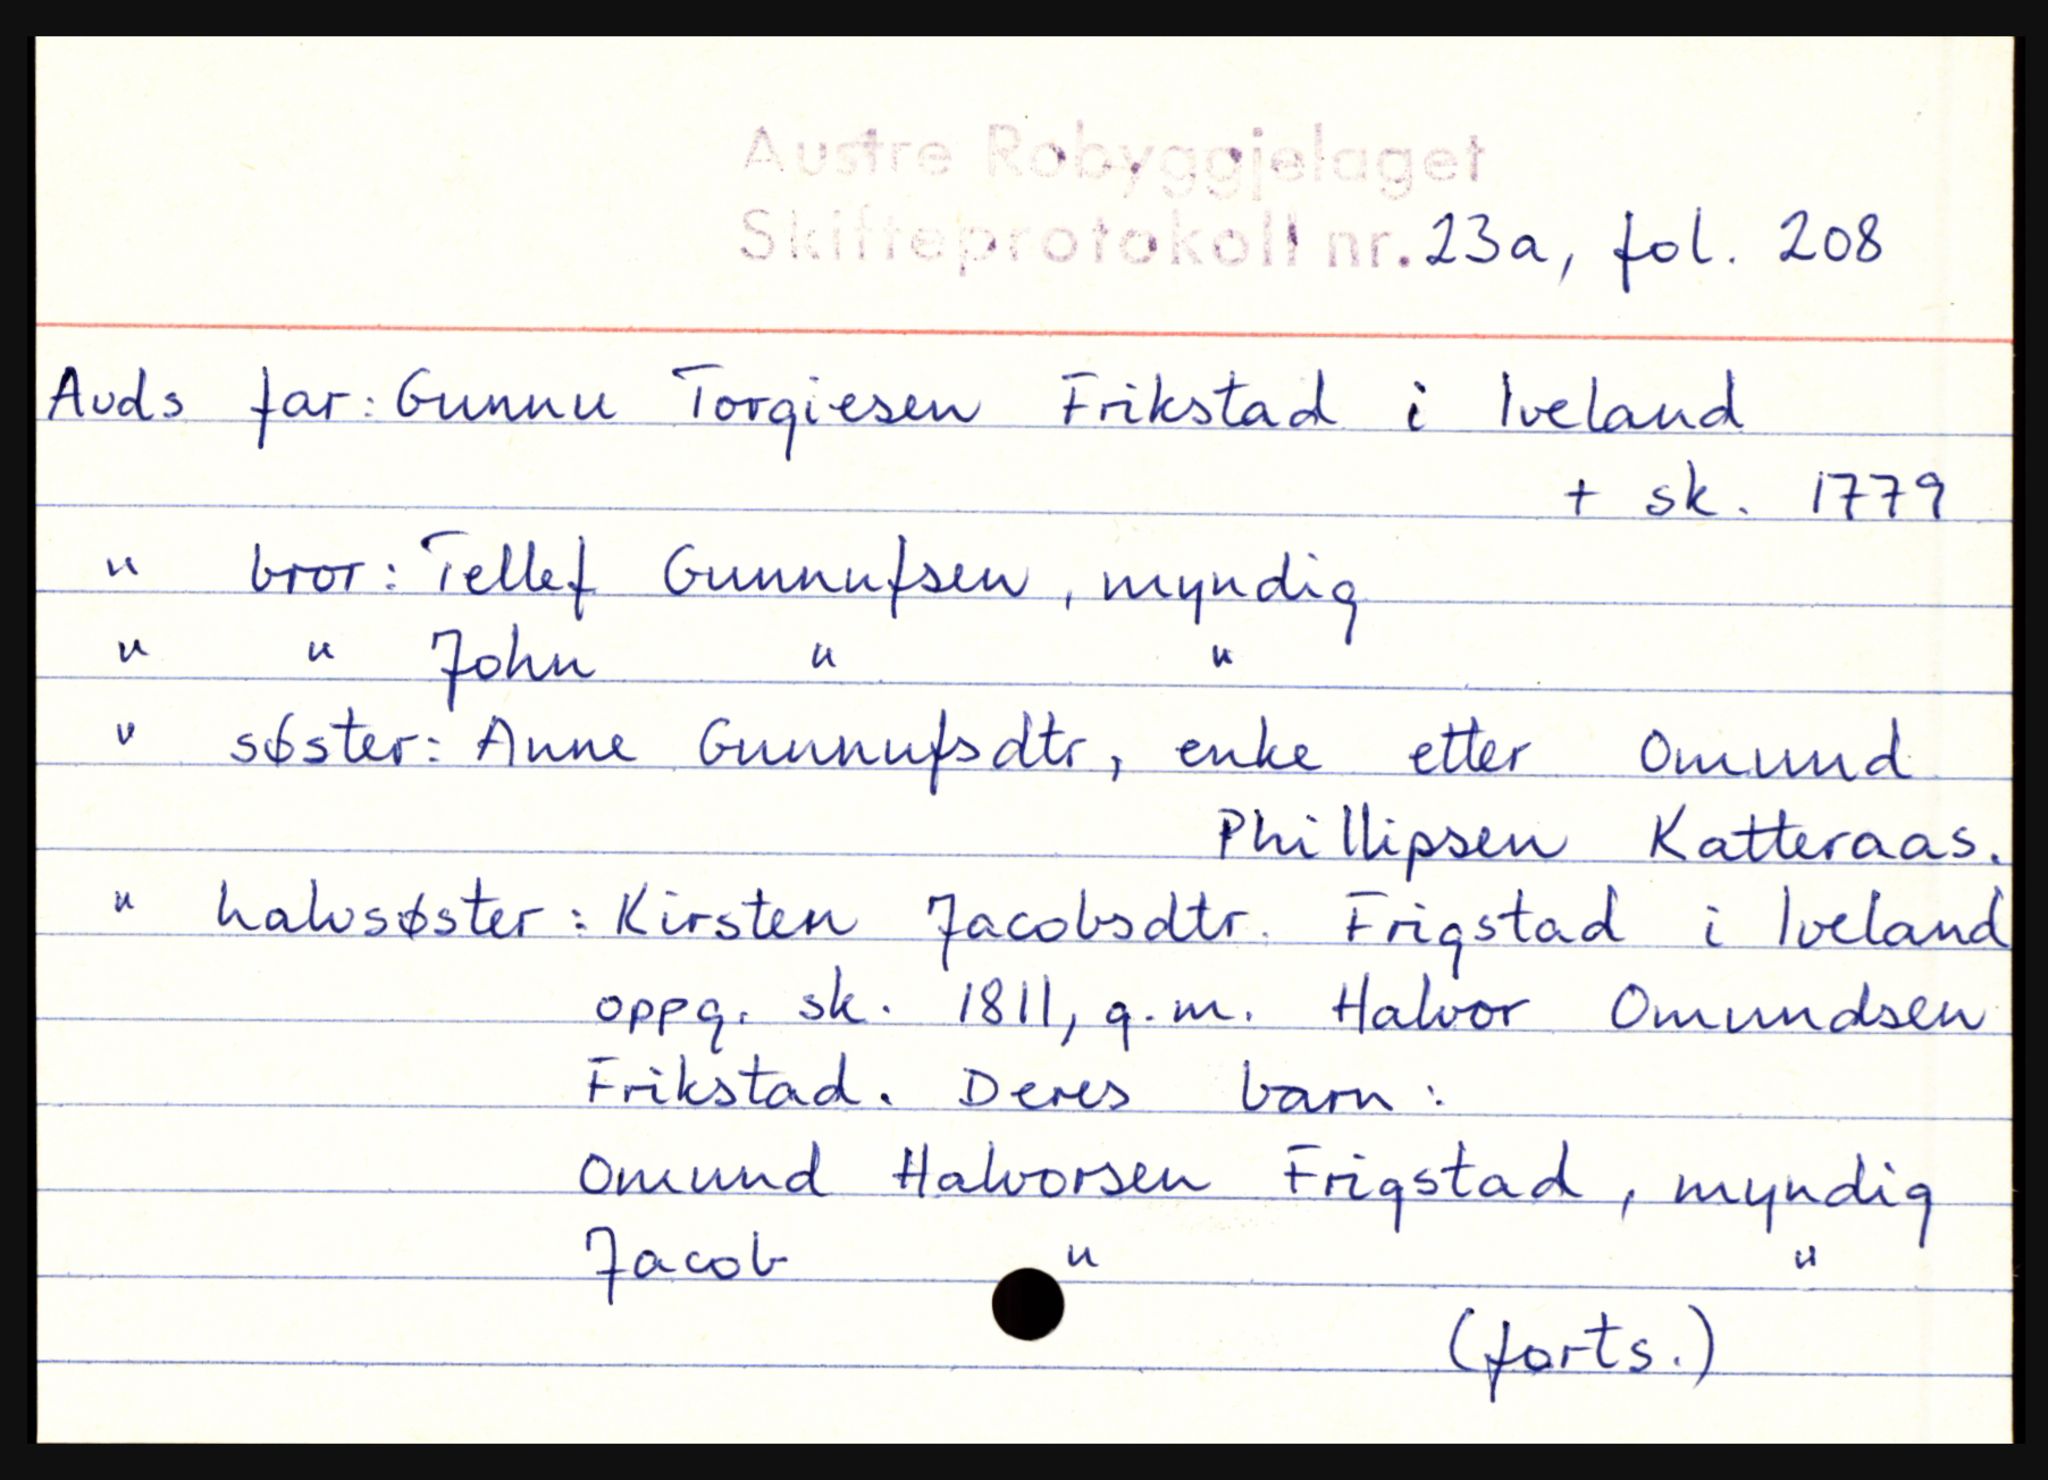 Austre Robyggjelaget
Skifteprotokoll nr. 23a, fol. 208
Auds far: Gunnu Torgiesen Frikstad i Iveland
+ sk. 1779
" bror: Tellef Gunnufsen, myndig
" " John " "
" søster: Anne Gunnufsdtr, enke etter Omund
Phillipsen Katteraas.
" halvsøster: Kirsten Jacobsdtr. Frigstad i Iveland
oppg. sk. 1811, g.m. Halvor Omundsen
Frikstad. Deres barn:
Omund Halvorsen Frigstad, myndig
Jacob " "
(forts.)